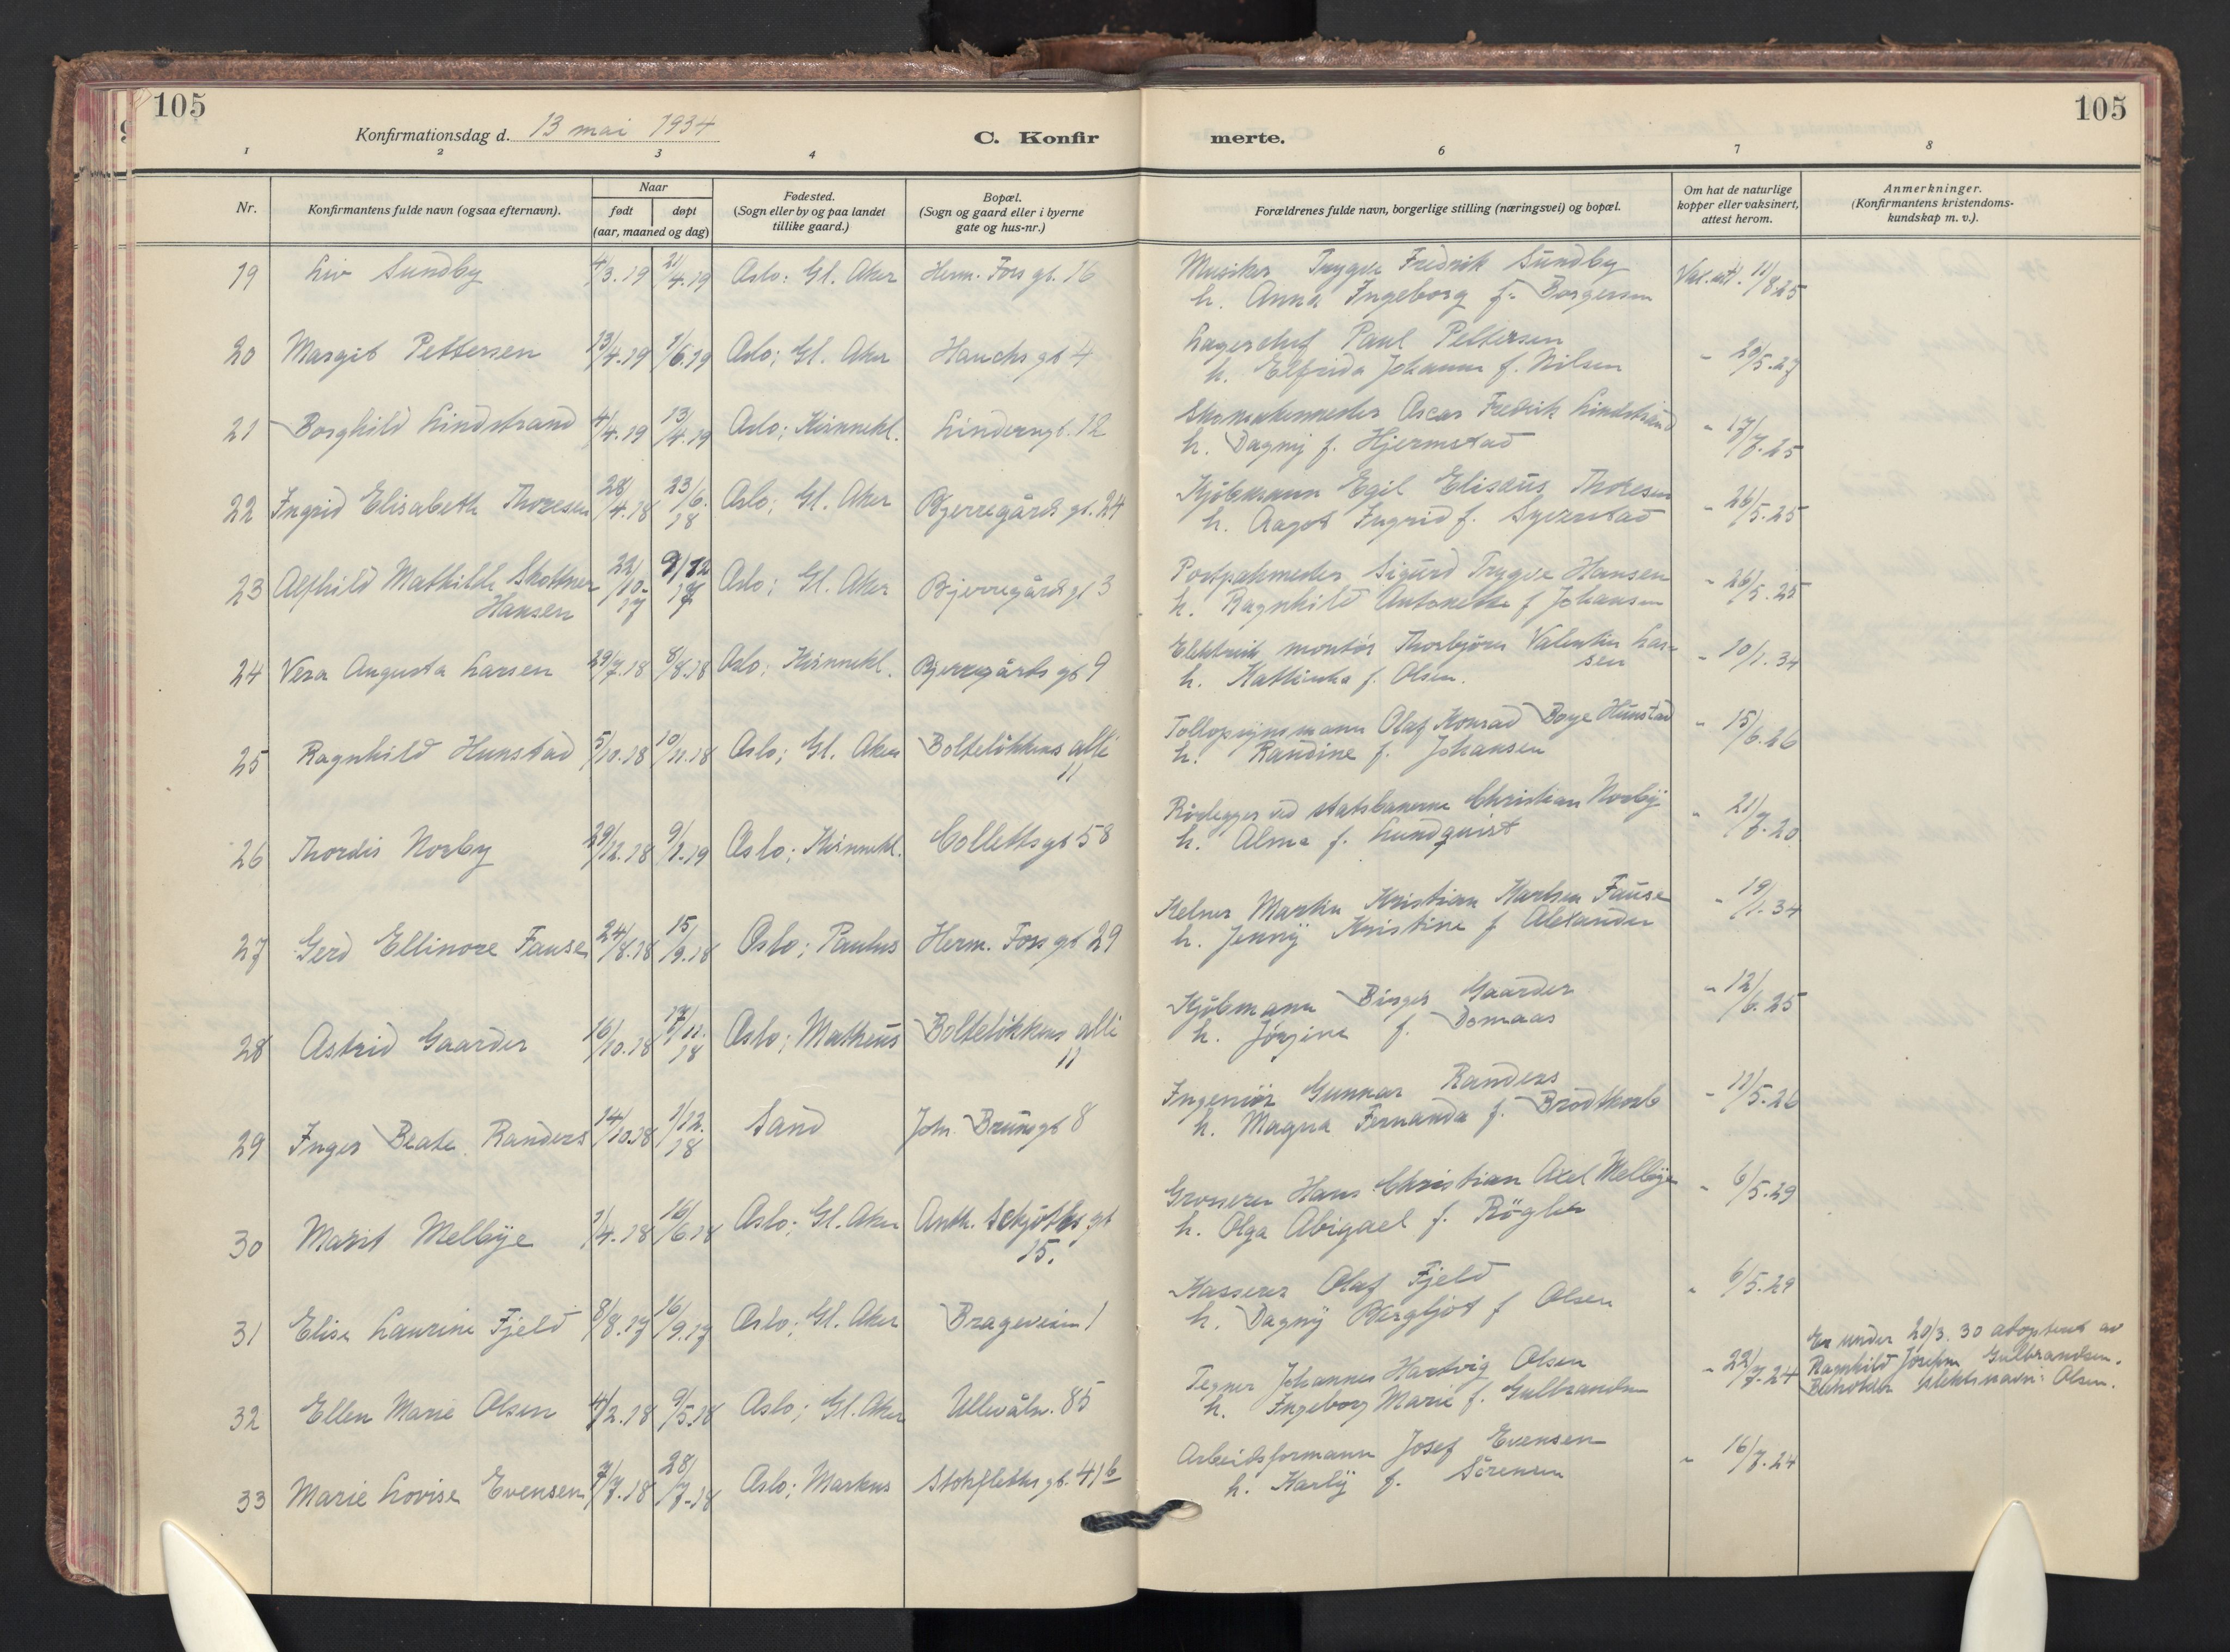 105
105
Konfirmationsdag d. 13 mai 1934
C. Konfir
merte.
1 2 3 4 6 7 8
Nr.
Konfirmantens fulde navn (ogsaa efternavn).
Naar
født
døpt
(aar, maaned og dag)
Fødested.
(Sogn eller by og paa landet
tillike gaard.)
Bopæl.
(Sogn og gaard eller i byerne
gate og hus-nr.)
Forældrenes fulde navn, borgerlige stilling (næringsvei) og bopæl.
Om hat de naturlige
kopper eller vaksinert,
attest herom.
Anmerkninger.
(Konfirmantens kristendoms-
kundskap m. v.).
19 Liv Sundby 4/3.19 21/4.19 Oslo: Gl. Aker Herm. Foss gt. 16 Musiker Trygve Fredrik Sundby Vak.att. 11/8.25
h. Anna Ingeborg f. Borgersen
20 Margit Pettersen 13/4.19 1/6.19 Oslo; Gl. Aker Hauchs gt 4 Lagerchef Paul Pettersen
h. Elfrida Johanne f. Nilsen - 20/5.27
21 Borghild Lindstrand 4/4.19 13/4.19 Oslo; Kvinnekl. Linderngt. 12 Skomakermester Oscar Fredrik Lindstrand
h. Dagny f. Hjermstad - 17/7.25
22 Ingrid Elisabeth Thoresen 28/4.18 23/6.18 Oslo; Gl. Aker Bjerregårds gt. 24 Kjøbmann Egil Elisæus Thoresen
h. Aagot Ingrid f. Syverstad - 26/5.25
23 Alfhild Mathilde Skottner
Hansen 22/10.17 9/12 17 Oslo; Gl. Aker Bjerregårds gt 3 Postpakmester Sigurd Trygve Hansen
h. Ragnhild Antonette f Johansen - 26/5.25
24 Vera Augusta Larsen 29/7.18 8/8.18 Oslo; Kvinnekl. Bjerregårds gt 9 Elektrisk montør Thorbjørn Valentin Lar-
sen
h. Kathinka f. Olsen. - 10/1.34
25 Ragnhild Hunstad 5/10.18 10/11.18 Oslo; Gl. Aker Bolteløkkens allé
11 Tollopsynsmann Olaf Konrad Boye Hunstad
h. Randine f. Johansen - 15/6.26
26 Thordis Norby 29/12.18 9/1.19 Oslo; Kvinnekl. Colletts gt 58 Rørlegger ved statsbanerne Christian Norby
h. Alma f. Lundquist - 21/7.20
27 Gerd Ellinore Fause 24/8.18 15/9.18 Oslo; Paulus Herm. Foss gt 29 Kelner Martin Kristian Karlsen Fause
h. Jenny Kristine f Alexander - 19/1.34
28 Astrid Gaarder 16/10.18 17/11.18 Oslo; Matheus Bolteløkkens allé
11 Kjøbmann Birger Gaarder
h. Jørgine f. Domaas - 12/6.25
29 Inger Beate Randers 14/10.18 1/12.18 Sand Joh. Bruns gt 8 Ingeniør Gunnar Randers
h. Magna Fernanda f. Brodtkorb - 11/5.26
30 Marit Melbye 1/4.18 16/6.18 Oslo; Gl. Aker Anth. Schjøths gt
15. Grosserer Hans Christian Axel Melbye
h. Olga Abigael f. Rögler - 6/5.29
31 Elise Laurine Fjeld 8/8.17 16/9.17 Oslo; Gl. Aker Brageveien 1 Kasserer Olaf Fjeld
h. Dagny Bergljot f Olsen - 6/5.29
32 Ellen Marie Olsen 4/2.18 9/5.18 Oslo; Gl. Aker Ullevålsv. 85 Tegner Johannes Hartvig Olsen
h. Ingeborg Marie f. Gulbrandsen - 22/7.24
Er under 20/3.30 adoptert av
Ragnhild Josefine Gulbrandsen.
Beholder slektsnavn: Olsen.
33 Marie Lovise Evensen 7/7.18 28/7.18 Oslo; Markus Stokfleths gt. 41 b Arbeidsformann Josef Evensen
h. Karly f. Sørensen - 16/7.24